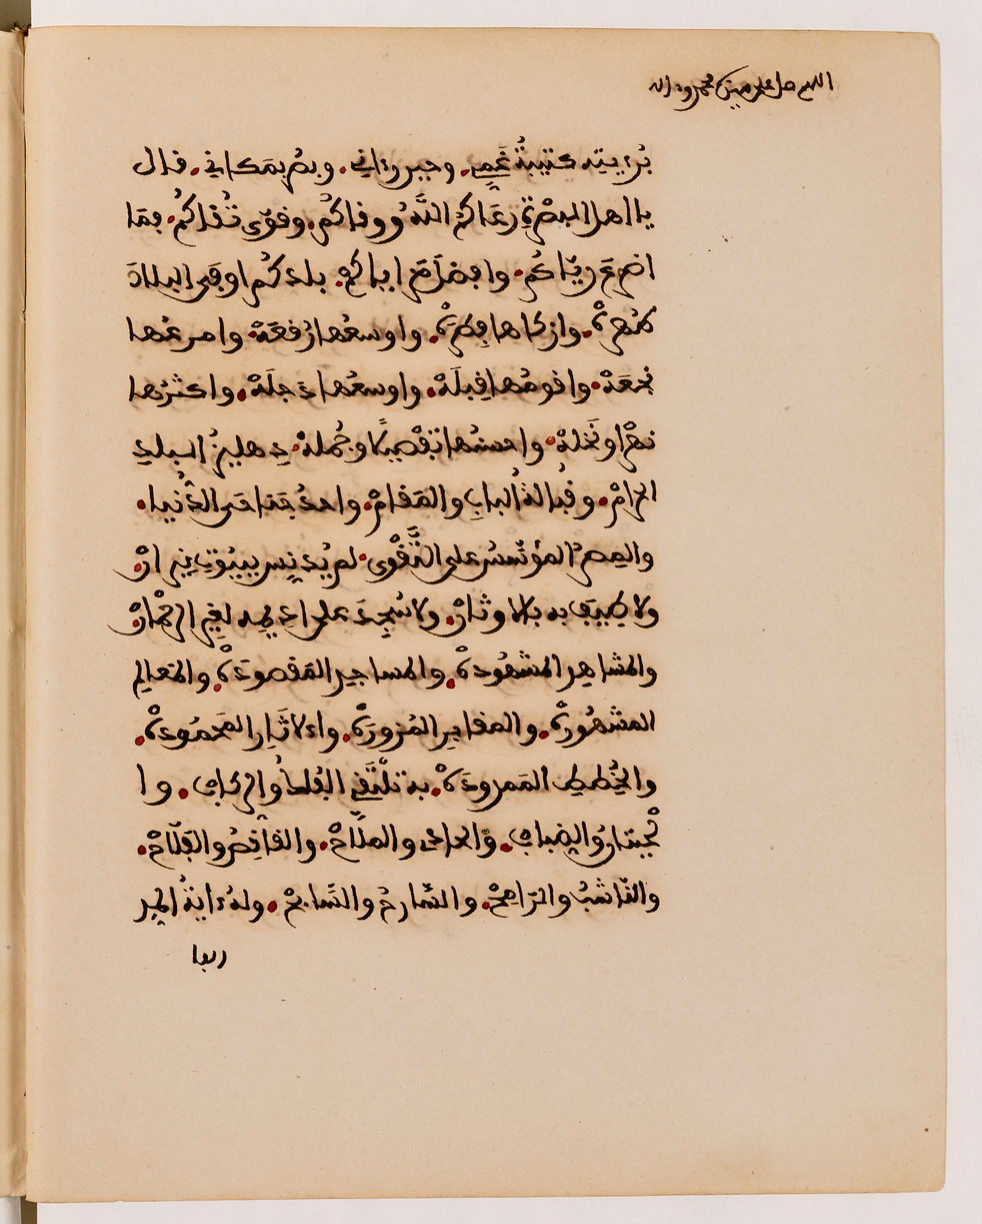 اللهم صل على سيدنا محمد وءاله
برءيته كتيبةُ غَمِي. وحين رءاني. وبصُر بمكاني. قال
يا اهل البصرة رعاكم اللَّهُ ووقاكُم. وقوّى تُقاكُم. فما
اضوع ريّاكُم. وافضل مزاياكم. بلدكُم اوفى البلاد
طُهرةْ. وازكاها فِطرةْ. واوسعُها رُقعَةْ. وامرعُها
نُجعَةْ. واقومُها قِبلَةْ. واوسعُها دجلَةْ. واكثرُها
نهرًا ونَخلةْ. واحسنُها تفصيلًا وجُملةْ. دِهليزُ البلدِ
الحرامْ. وقُبالةُ البابِ والمَقامْ. واحدُ جَناحَيِ الدُّنيا.
والمِصرُ المؤسّسُ على التَّقْوى. لم يُدنِس ببيُوتِ نيرانْ.
ولا طِيف به بالاوثانْ. ولا سُجِدَ على اديمِه لغيرِ الرحْمانْ.
والمشاهِد المشهُودةْ. والمساجِد المَقصودةْ. والمَعالِم
المشهُورةْ. والمقابِر المَزورةْ. والاثارِ المَحمُودةْ.
والخُطِطِ المَحدودةْ. به تلْتَقي الفُلكُ والرِكاب. وا
لْحيتانُ والضِباب. والحادى والملّاحْ. والقانِصُ والفلّاحْ.
والنّاشبُ والرّامحْ. والسّارحُ والسّابحْ. ولهُ ءايةُ المدِ